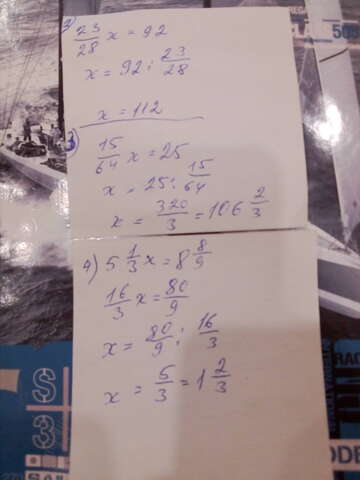 2)
23/28 x = 92
x = 92 : 23/28
x = 112
3)
15/64 x = 25
x = 25 : 15/64
x = 320/3 = 106 2/3
4) 5 1/3 x = 8 8/9
16/3 x = 80/9
x = 80/9 : 16/3
x = 5/3 = 1 2/3
S
3